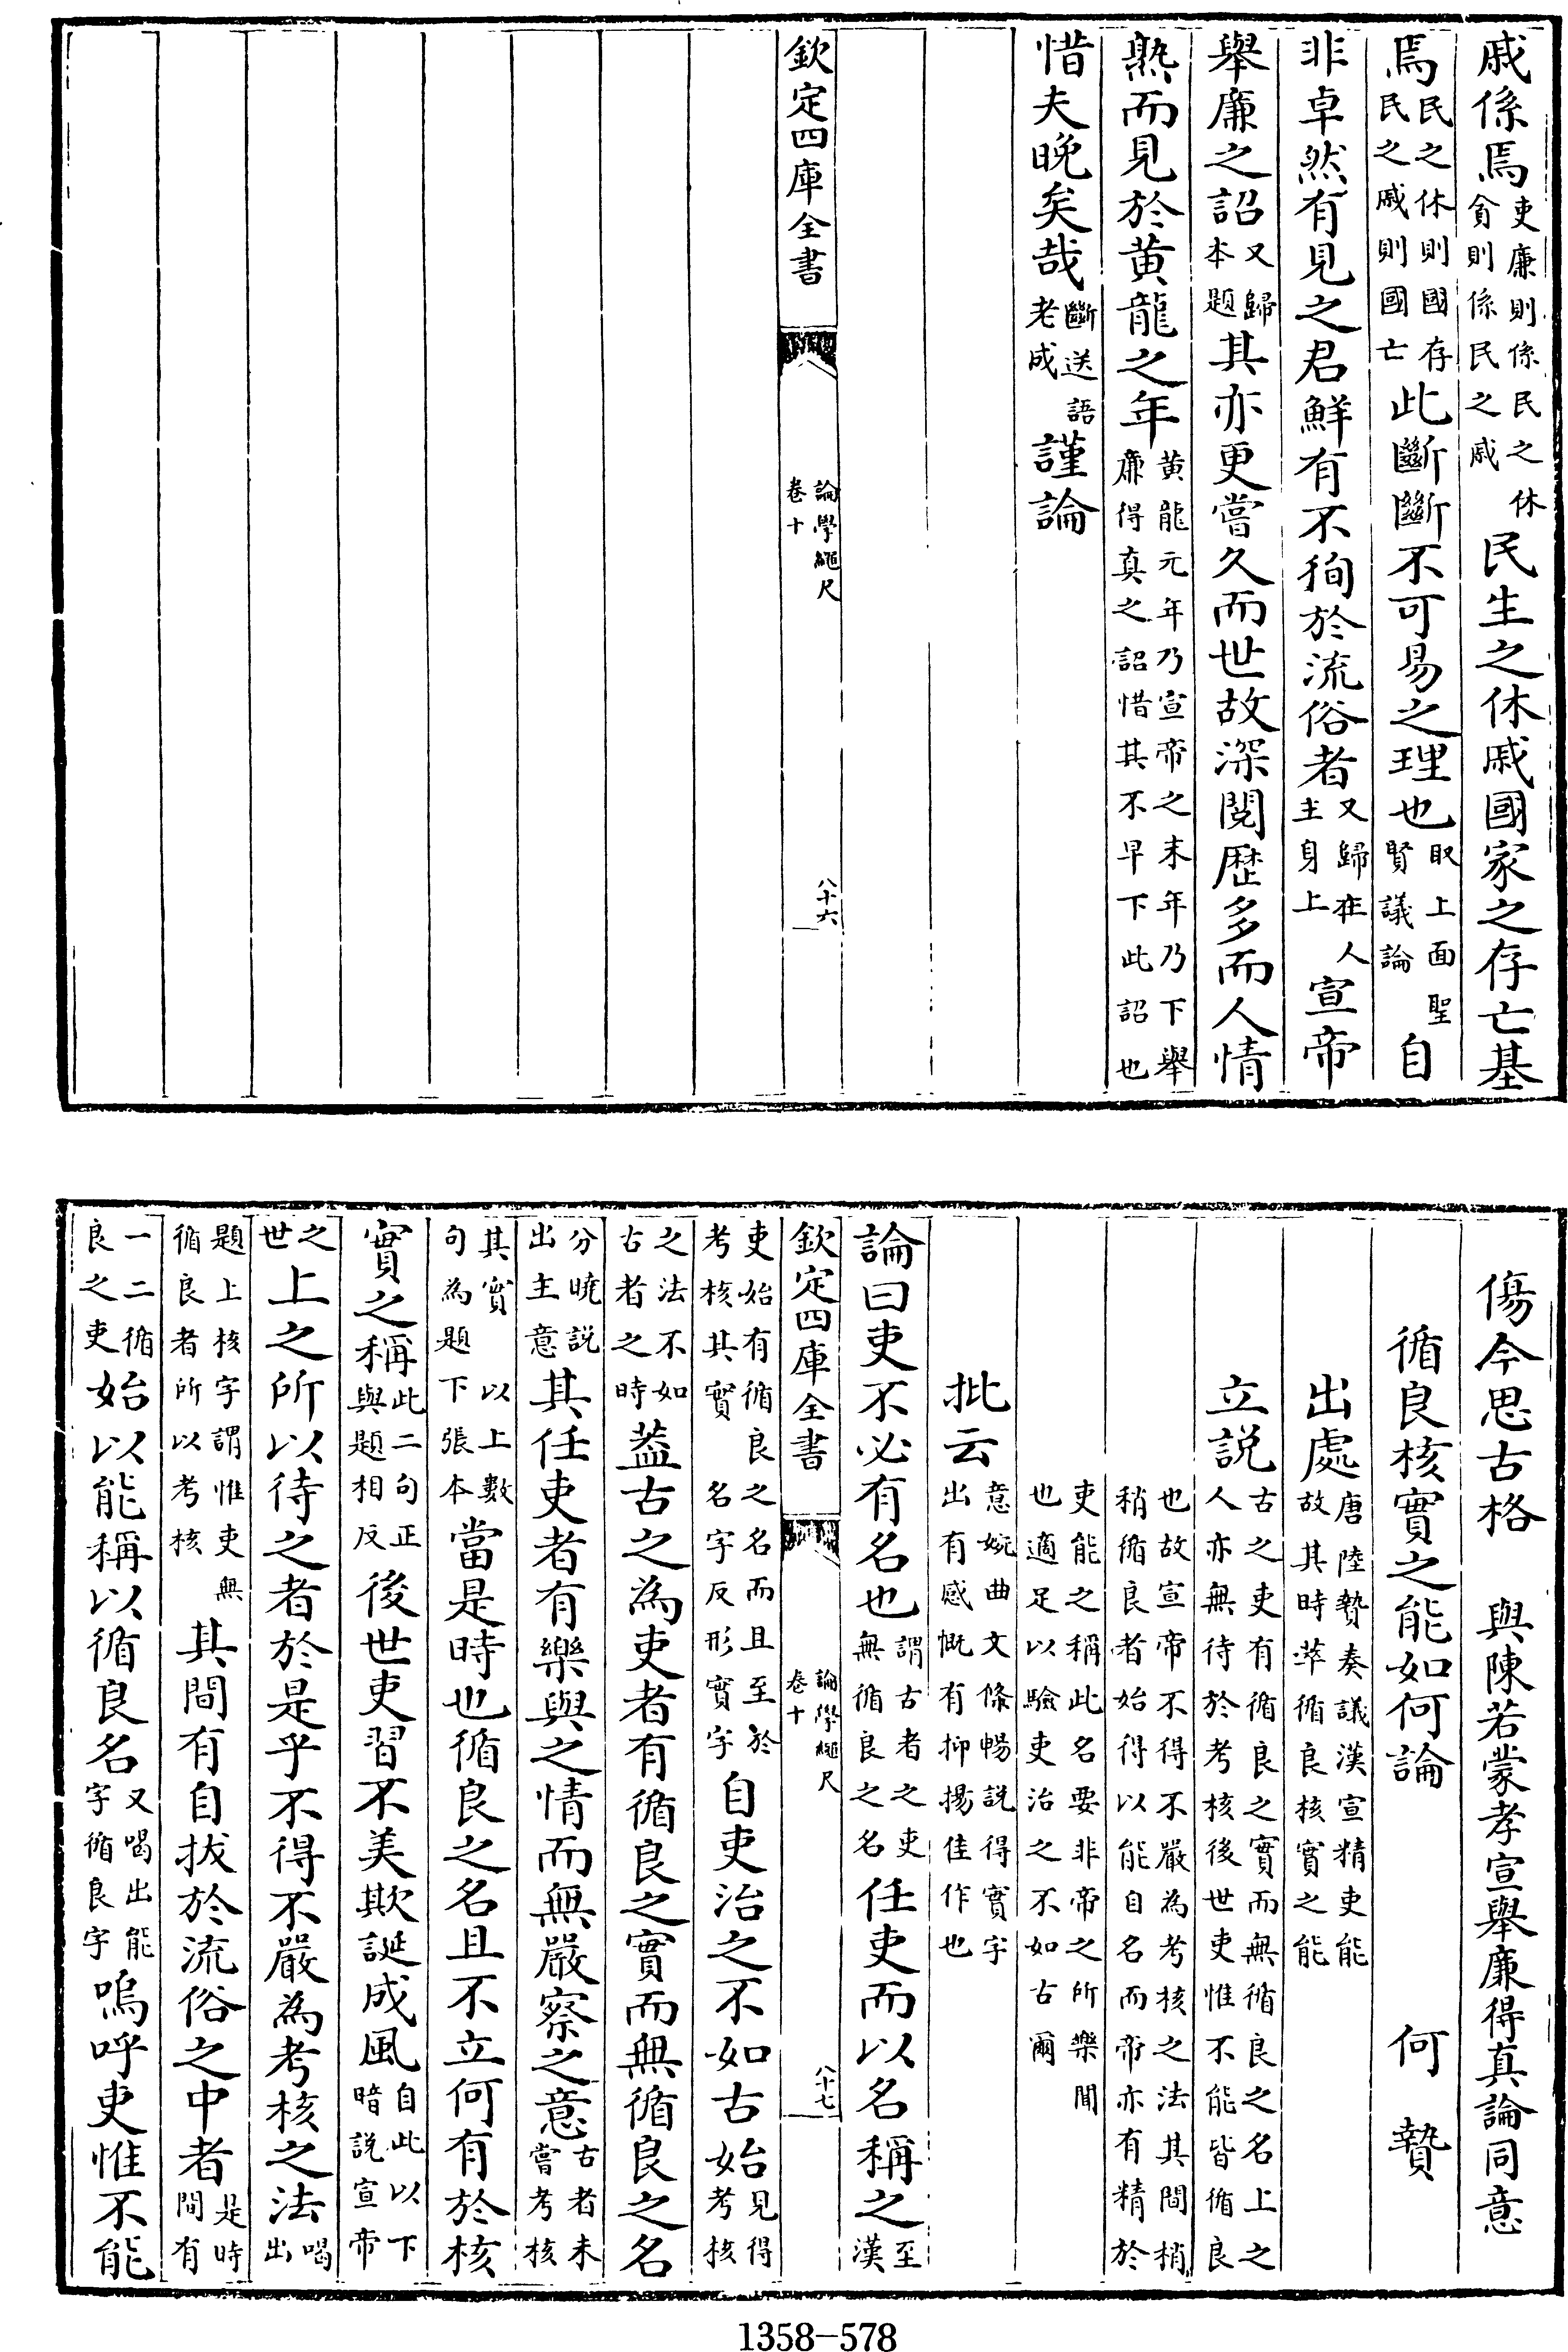 戚係焉吏廉則係民之休貪則係民之戚民生之休戚國家之存亡基
焉民之休則國存民之戚則國亡此斷斷不可易之理也取上面聖賢議論自
非卓然有見之君鮮有不徇於流俗者又歸在人主身上宣帝
舉廉之詔又歸本題其亦更嘗久而世故深閱歷多而人情
熟而見於黄龍之年黄龍元年乃宣帝之末年乃下舉廉得真之詔惜其不早下此詔也
惜夫晚矣哉斷送語老成謹論
欽定四庫全書
論學繩尺
卷十
八十六
傷今思古格 與陳若蒙孝宣舉廉得真論同意
循良核實之能如何論 何贄
出處唐陸贄奏議漢宣精吏能故其時萃循良核實之能
立説古之吏有循良之實而無循良之名上之人亦無待於考核後世吏惟不能皆循良
也故宣帝不得不嚴為考核之法其間稍稍循良者始得以能自名而帝亦有精於
吏能之稱此名要非帝之所樂聞也適足以驗吏治之不如古爾
批云意婉曲文條暢説得實字出有感慨有抑揚佳作也
論曰吏不必有名也謂古者之吏無循良之名任吏而以名稱之至漢
欽定四庫全書
論學繩尺
卷十
八十七
吏始有循良之名而且至於考核其實名字反形實字自吏治之不如古始見得考核
之法不如古者之時葢古之為吏者有循良之實而無循良之名
分曉説出主意其任吏者有樂與之情而無嚴察之意古者未嘗考核
其實以上數句為題下張本當是時也循良之名且不立何有於核
實之稱此二句正與題相反後世吏習不美欺誕成風自此以下暗説宣帝
之世上之所以待之者於是乎不得不嚴為考核之法喝出
題上核字謂惟吏無循良者所以考核其間有自拔於流俗之中者是時間有
一二循良之吏始以能稱以循良名又喝出能字循良字嗚呼吏惟不能
1358-578